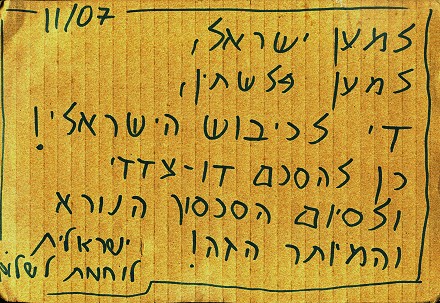 11/07
למען ישראל,
למען פלשתין,
די לכיבוש הישראלי!
כן להסכם דו-צדדי
ולסיום הסכסוך הנורא
והמיותר הזה!
ישראלית
לוחמת לשלום